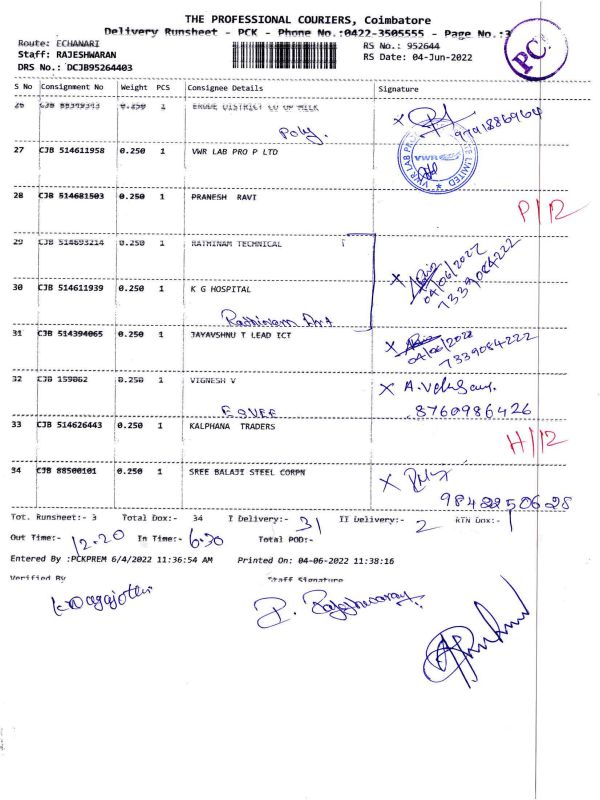 THE PROFESSIONAL COURIERS, Coimbatore
Delivery Runsheet - PCK - Phone No.:0422-3505555 - Page No.:3
Route: ECHANARI RS No.: 952644
Staff: RAJESHWARAN RS Date: 04-Jun-2022
DRS No.: DCJB95264403
PC
S No Consignment No Weight PCS Consignee Details Signature
26 CJB 0.250 1 ERODE DISTRICT CO OP MILK
Poly. X 9791886964
27 CJB 514611958 0.250 1 VWR LAB PRO P LTD
VWR
28 CJB 514681503 0.250 1 PRANESH RAVI
P/12
29 CJB 514693214 0.250 1 RATHINAM TECHNICAL
30 CJB 514611939 0.250 1 K G HOSPITAL
X 04/06/2022
7339084222
Rathinam
31 CJB 514394065 0.250 1 JAYAVSHNU T LEAD ICT
X 04/06/2022
7339084222
32 CJB 159862 0.250 1 VIGNESH V
X A.
8760986426
33 CJB 514626443 0.250 1 KALPHANA TRADERS
H/12
34 CJB 88500101 0.250 1 SREE BALAJI STEEL CORPN
X
9842250628
Tot. Runsheet:- 3 Total Dox:- 34 I Delivery:- 31 II Delivery:- 2 RTN Dox:- 1
Out Time:- 12.20 In Time:- 6.30 Total POD:-
Entered By :PCKPREM 6/4/2022 11:36:54 AM Printed On: 04-06-2022 11:38:16
Verified By Staff Signature
P. Rajeshwaran